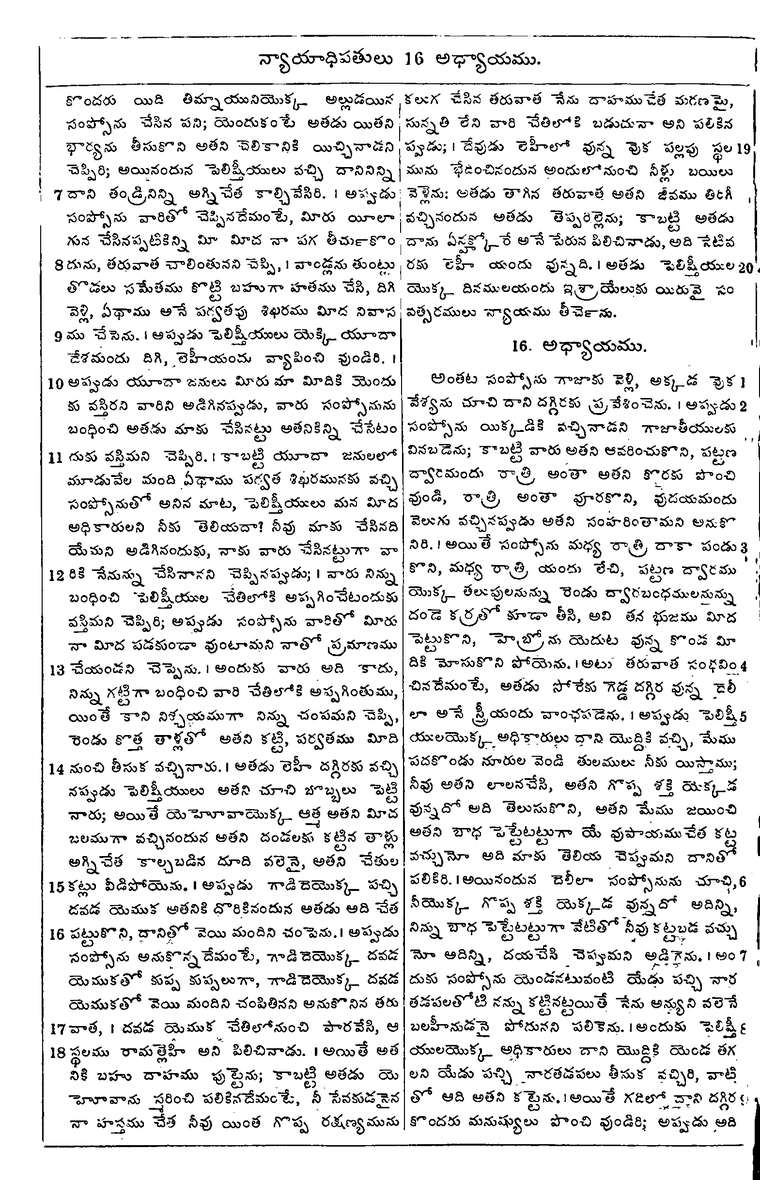 న్యాయాధిపతులు 16 అధ్యాయము.
కొందరు యిది తిమ్నాయునియొక్క అల్లుడయిన
సంప్సోను చేసిన పని; యెందుకంటే అతడు యితని
భార్యను తీసుకొని అతని చెలికానికి యిచ్చినాడని
చెప్పిరి; అయినందున పెలిష్తీయులు వచ్చి దానినిన్ని
7 దాని తండ్రినిన్ని అగ్నిచేత కాల్చివేసిరి. । అప్పుడు
సంప్సోను వారితో చెప్పినదేమంటే, మీరు యీలా
గున చేసినప్పటికిన్ని మీ మీద నా పగ తీర్చుకొం
8 దును, తరువాత చాలింతునని చెప్పి, । వాండ్లను తుంట్లు
తొడలు సమేతము కొట్టి బహుగా హతము చేసి, దిగి
వెళ్లి, ఏథాము అనే పర్వతపు శిఖరము మీద నివాస
9 ము చేసెను. । అప్పుడు పెలిష్తీయులు యెక్కి యూదా
దేశమందు దిగి, లెహీయందు వ్యాపించి వుండిరి. ।
10 అప్పుడు యూదా జనులు మీరు మా మీదికి యెందు
కు వస్తిరని వారిని అడిగినప్పుడు, వారు సంప్సోనును
బంధించి అతడు మాకు చేసినట్టు అతనికిన్ని చేసేటం
11 దుకు వస్తిమని చెప్పిరి. । కాబట్టి యూదా జనులలో
మూడువేల మంది ఏథాము పర్వత శిఖరమునకు వచ్చి
సంప్సోనుతో అనిన మాట, పెలిష్తీయులు మన మీద
అధికారులని నీకు తెలియదా? నీవు మాకు చేసినది
యేమని అడిగినందుకు, నాకు వారు చేసినట్టుగా వా
12 రికి నేనున్ను చేసినానని చెప్పినప్పుడు; । వారు నిన్ను
బంధించి పెలిష్తీయుల చేతిలోకి అప్పగించేటందుకు
వస్తిమని చెప్పిరి; అప్పుడు సంప్సోను వారితో మీరు
నా మీద పడకుండా వుంటామని నాతో ప్రమాణము
13 చేయండని చెప్పెను. । అందుకు వారు అది కాదు,
నిన్ను గట్టిగా బంధించి వారి చేతిలోకి అప్పగింతుము,
యింతే కాని నిశ్చయముగా నిన్ను చంపమని చెప్పి,
రెండు కొత్త తాళ్లతో అతని కట్టి, పర్వతము మీది
14 నుంచి తీసుక వచ్చినారు. । అతడు లెహీ దగ్గిరకు వచ్చి
నప్పుడు పెలిష్తీయులు అతని చూచి బొబ్బలు పెట్టి
నారు; అయితే యెహోవాయొక్క ఆత్మ అతని మీద
బలముగా వచ్చినందున అతని దండలకు కట్టిన తాళ్లు
అగ్నిచేత కాల్చబడిన దూది వలెనై, అతని చేతుల
15 కట్లు వీడిపోయెను. । అప్పుడు గాడిదెయొక్క పచ్చి
దవడ యెముక అతనికి ధొరికినందున అతడు అది చేత
16 పట్టుకొని, దానితో వెయి మందిని చంపెను. । అప్పుడు
సంప్సోను అనుకొన్నదేమంటే, గాడిదెయొక్క దవడ
యెముకతో కుప్ప కుప్పలుగా, గాడిదెయొక్క దవడ
యెముకతో వెయి మందిని చంపితినని అనుకొనిన తరు
17 వాత, । దవడ యెముక చేతిలోనుంచి పారవేసి, ఆ
18 స్థలము రామత్లెహీ అని పిలిచినాడు. । అయితే అత
నికి బహు దాహము పుట్టెను; కాబట్టి అతడు యె
హోవాను స్మరించి పలికినదేమంటే, నీ సేవకుడనైన
నా హస్తము చేత నీవు యింత గొప్ప రక్షణ్యమును
కలుగ చేసిన తరువాత నేను దాహముచేత మరణమై,
సున్నతి లేని వారి చేతిలోకి బడుదునా అని పలికిన
ప్పుడు; । దేవుడు లెహీలో వున్న వొక పల్లపు స్థల 19
మును భేదించినందున అందులోనుంచి నీళ్లు బయిలు
వెళ్లెను: అతడు తాగిన తరువాత అతని జీవము తిరిగీ
వచ్చినందున అతడు తెప్పరిల్లెను; కాబట్టి అతడు
దాను ఏన్హక్కోరే అనే పేరున పిలిచినాడు, అది నేటివ
రకు లెహీ యందు వున్నది. । అతడు పెలిష్తీయుల 20
యొక్క దినములయందు ఇశ్రాయేలుకు యిరువై సం
వత్సరములు న్యాయము తీర్చెను.
16. అధ్యాయము.
అంతట సంప్సోను గాజాకు వెళ్లి, అక్కడ వొక 1
వేశ్యను చూచి దాని దగ్గిరకు ప్రవేశించెను. । అప్పుడు 2
సంప్సోను యిక్కడికి వచ్చినాడని గాజాతీయులకు
వినబడెను; కాబట్టి వారు అతని ఆవరించుకొని, పట్టణ
ద్వారమందు రాత్రి అంతా అతని కొరకు పొంచి
వుండి, రాత్రి అంతా వూరకొని, వుదయమందు
వెలుగు వచ్చినప్పుడు అతని సంహరింతామని అనుకొ
నిరి. । అయితే సంప్సోను మధ్య రాత్రి దాకా పండు 3
కొని, మధ్య రాత్రి యందు లేచి, పట్టణ ద్వారము
యొక్క తలుపులనున్ను రెండు ద్వారబంధములనున్ను
దండె కర్రతో కూడా తీసి, అవి తన భుజము మీద
పెట్టుకొని, హెబ్రోను యెదుట వున్న కొండ మీ
దికి మోసుకొని పోయెను. । అటు తరువాత సంభవిం 4
చినదేమంటే, అతడు సోరేకు గెడ్డ దగ్గిర వున్న దెలీ
లా అనే స్త్రీయందు వాంఛపడెను. । అప్పుడు పెలిష్తీ 5
యులయొక్క అధికారులు దాని యొద్దికి వచ్చి, మేము
పదకొండు నూరుల వెండి తులములు నీకు యిస్తాము;
నీవు అతని లాలనచేసి, అతని గొప్ప శక్తి యెక్కడ
వున్నదో అది తెలుసుకొని, అతని మేము జయించి
అతని బాధ పెట్టేటట్టుగా యే వుపాయముచేత కట్ట
వచ్చునో అది మాకు తెలియ చెప్పుమని దానితో
పలికిరి. । అయినందున దెలీలా సంప్సోనును చూచ్చి, 6
నీయొక్క గొప్ప శక్తి యెక్కడ వున్నదో అదిన్ని,
నిన్ను బాధ పెట్టేటట్టుగా వేటితో నీవు కట్టబడ వచ్చు
నో అదిన్ని, దయచేసి చెప్పుమని అడిగెను. । అం 7
దుకు సంప్సోను యెండనటువంటి యేడు పచ్చి నార
తడపలతోటి నన్ను కట్టినట్టయితే నేను అన్యుని వలెనే
బలహీనుడనై పోదునని పలికెను. । అందుకు పెలిష్తీ 8
యులయొక్క అధికారులు దాని యొద్దికి యెండ తగ
లని యేడు పచ్చి నారతడపలు తీసుక వచ్చిరి, వాటి
తో ఆది అతని కట్టెను. । అయితే గదిలో దాని దగ్గిర 9
కొందరు మనుష్యులు పొంచి వుండిరి; అప్పుడు అది